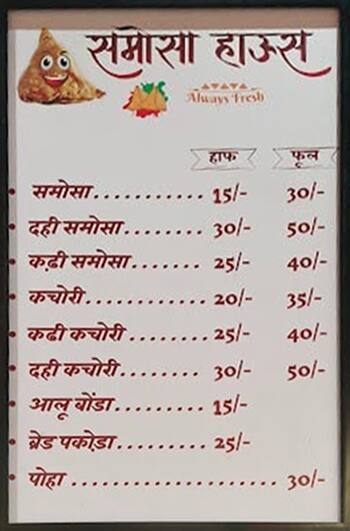 समोसा हाऊस
Always Fresh
हाफ फूल
समोसा........... 15/- 30/-
दही समोसा......... 30/- 50/-
कढी समोसा........ 25/- 40/-
कचोरी............ 20/- 35/-
कढी कचोरी........ 25/- 40/-
दही कचोरी........ 30/- 50/-
आलू बोंडा......... 15/-
ब्रेड पकोडा......... 25/-
पोहा .................... 30/-